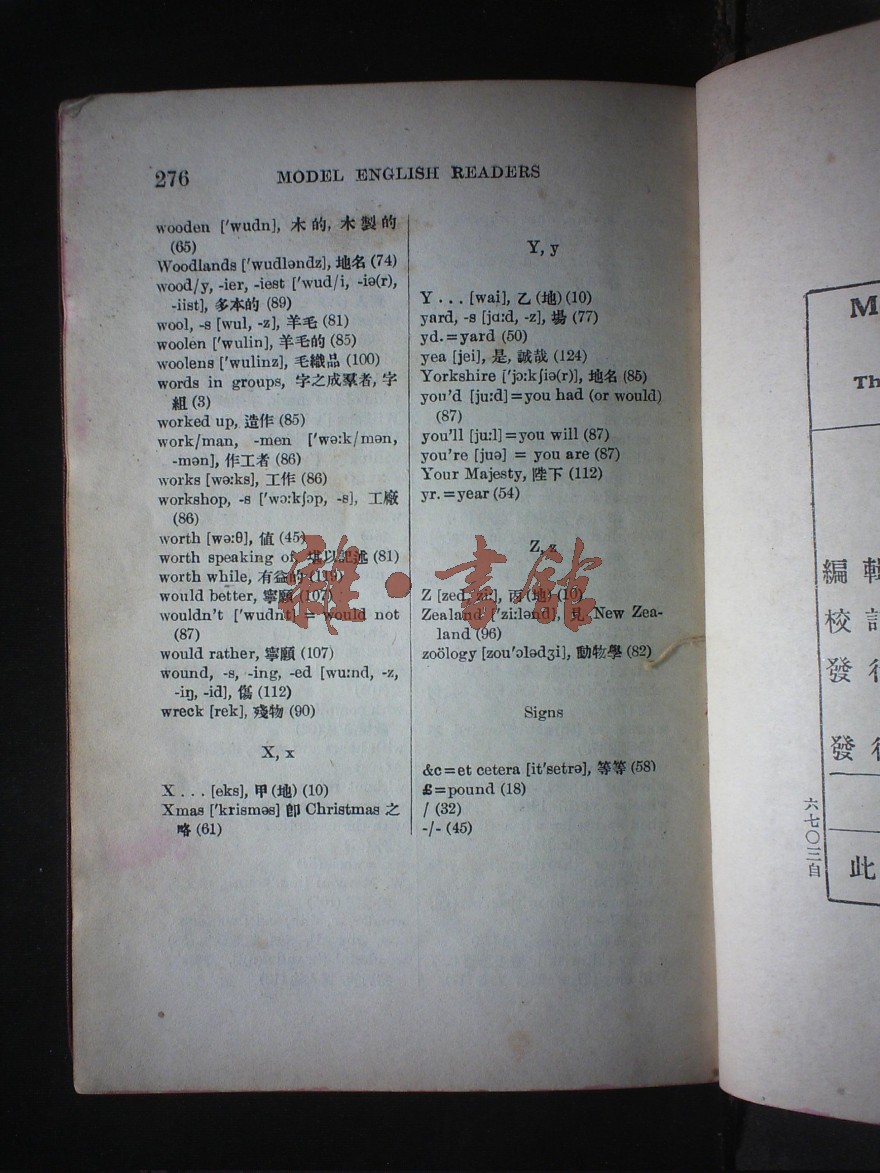 276 MODEL ENGLISH READERS
wooden ['wudn], 木的, 木製的
(65)
Woodlands ['wudləndz], 地名 (74)
wood/y, -ier, -iest ['wud/i, -iə(r),
-iist], 多本的 (89)
wool, -s [wul, -z], 羊毛 (81)
woolen ['wulin], 羊毛的 (85)
woolens ['wulinz], 毛織品 (100)
words in groups, 字之成羣者, 字
組 (3)
worked up, 造作 (85)
work/man, -men ['wə:k/mən,
-mən], 作工者 (86)
works [wə:ks], 工作 (86)
workshop, -s ['wə:kʃɔp, -s], 工廠
(86)
worth [wə:θ], 値 (45)
worth speaking of, 堪以記述 (81)
worth while, 有益的 (119)
would better, 寧願 (107)
wouldn't ['wudnt] = would not
(87)
would rather, 寧願 (107)
wound, -s, -ing, -ed [wu:nd, -z,
-iŋ, -id], 傷 (112)
wreck [rek], 殘物 (90)
X, x
X . . . [eks], 甲 (地) (10)
Xmas ['krisməs] 卽 Christmas 之
略 (61)
Y, y
Y . . . [wai], 乙 (地) (10)
yard, -s [jɑ:d, -z], 場 (77)
yd.=yard (50)
yea [jei], 是, 誠哉 (124)
Yorkshire ['jɔ:kʃiə(r)], 地名 (85)
you'd [ju:d]=you had (or would)
(87)
you'll [ju:l]=you will (87)
you're [juə] = you are (87)
Your Majesty, 陛下 (112)
yr.=year (54)
Z, z
Z [zed, zi:], 丙 (地) (10)
Zealand ['zi:lənd], 見 New Zea-
land (96)
zoölogy [zou'ɔlədʒi], 動物學 (82)
Signs
&c=et cetera [it'setrə], 等等 (58)
£=pound (18)
/ (32)
-/- (45)
雜·書館
M
Th
編輯
校
發行
發行
此
六七〇三自